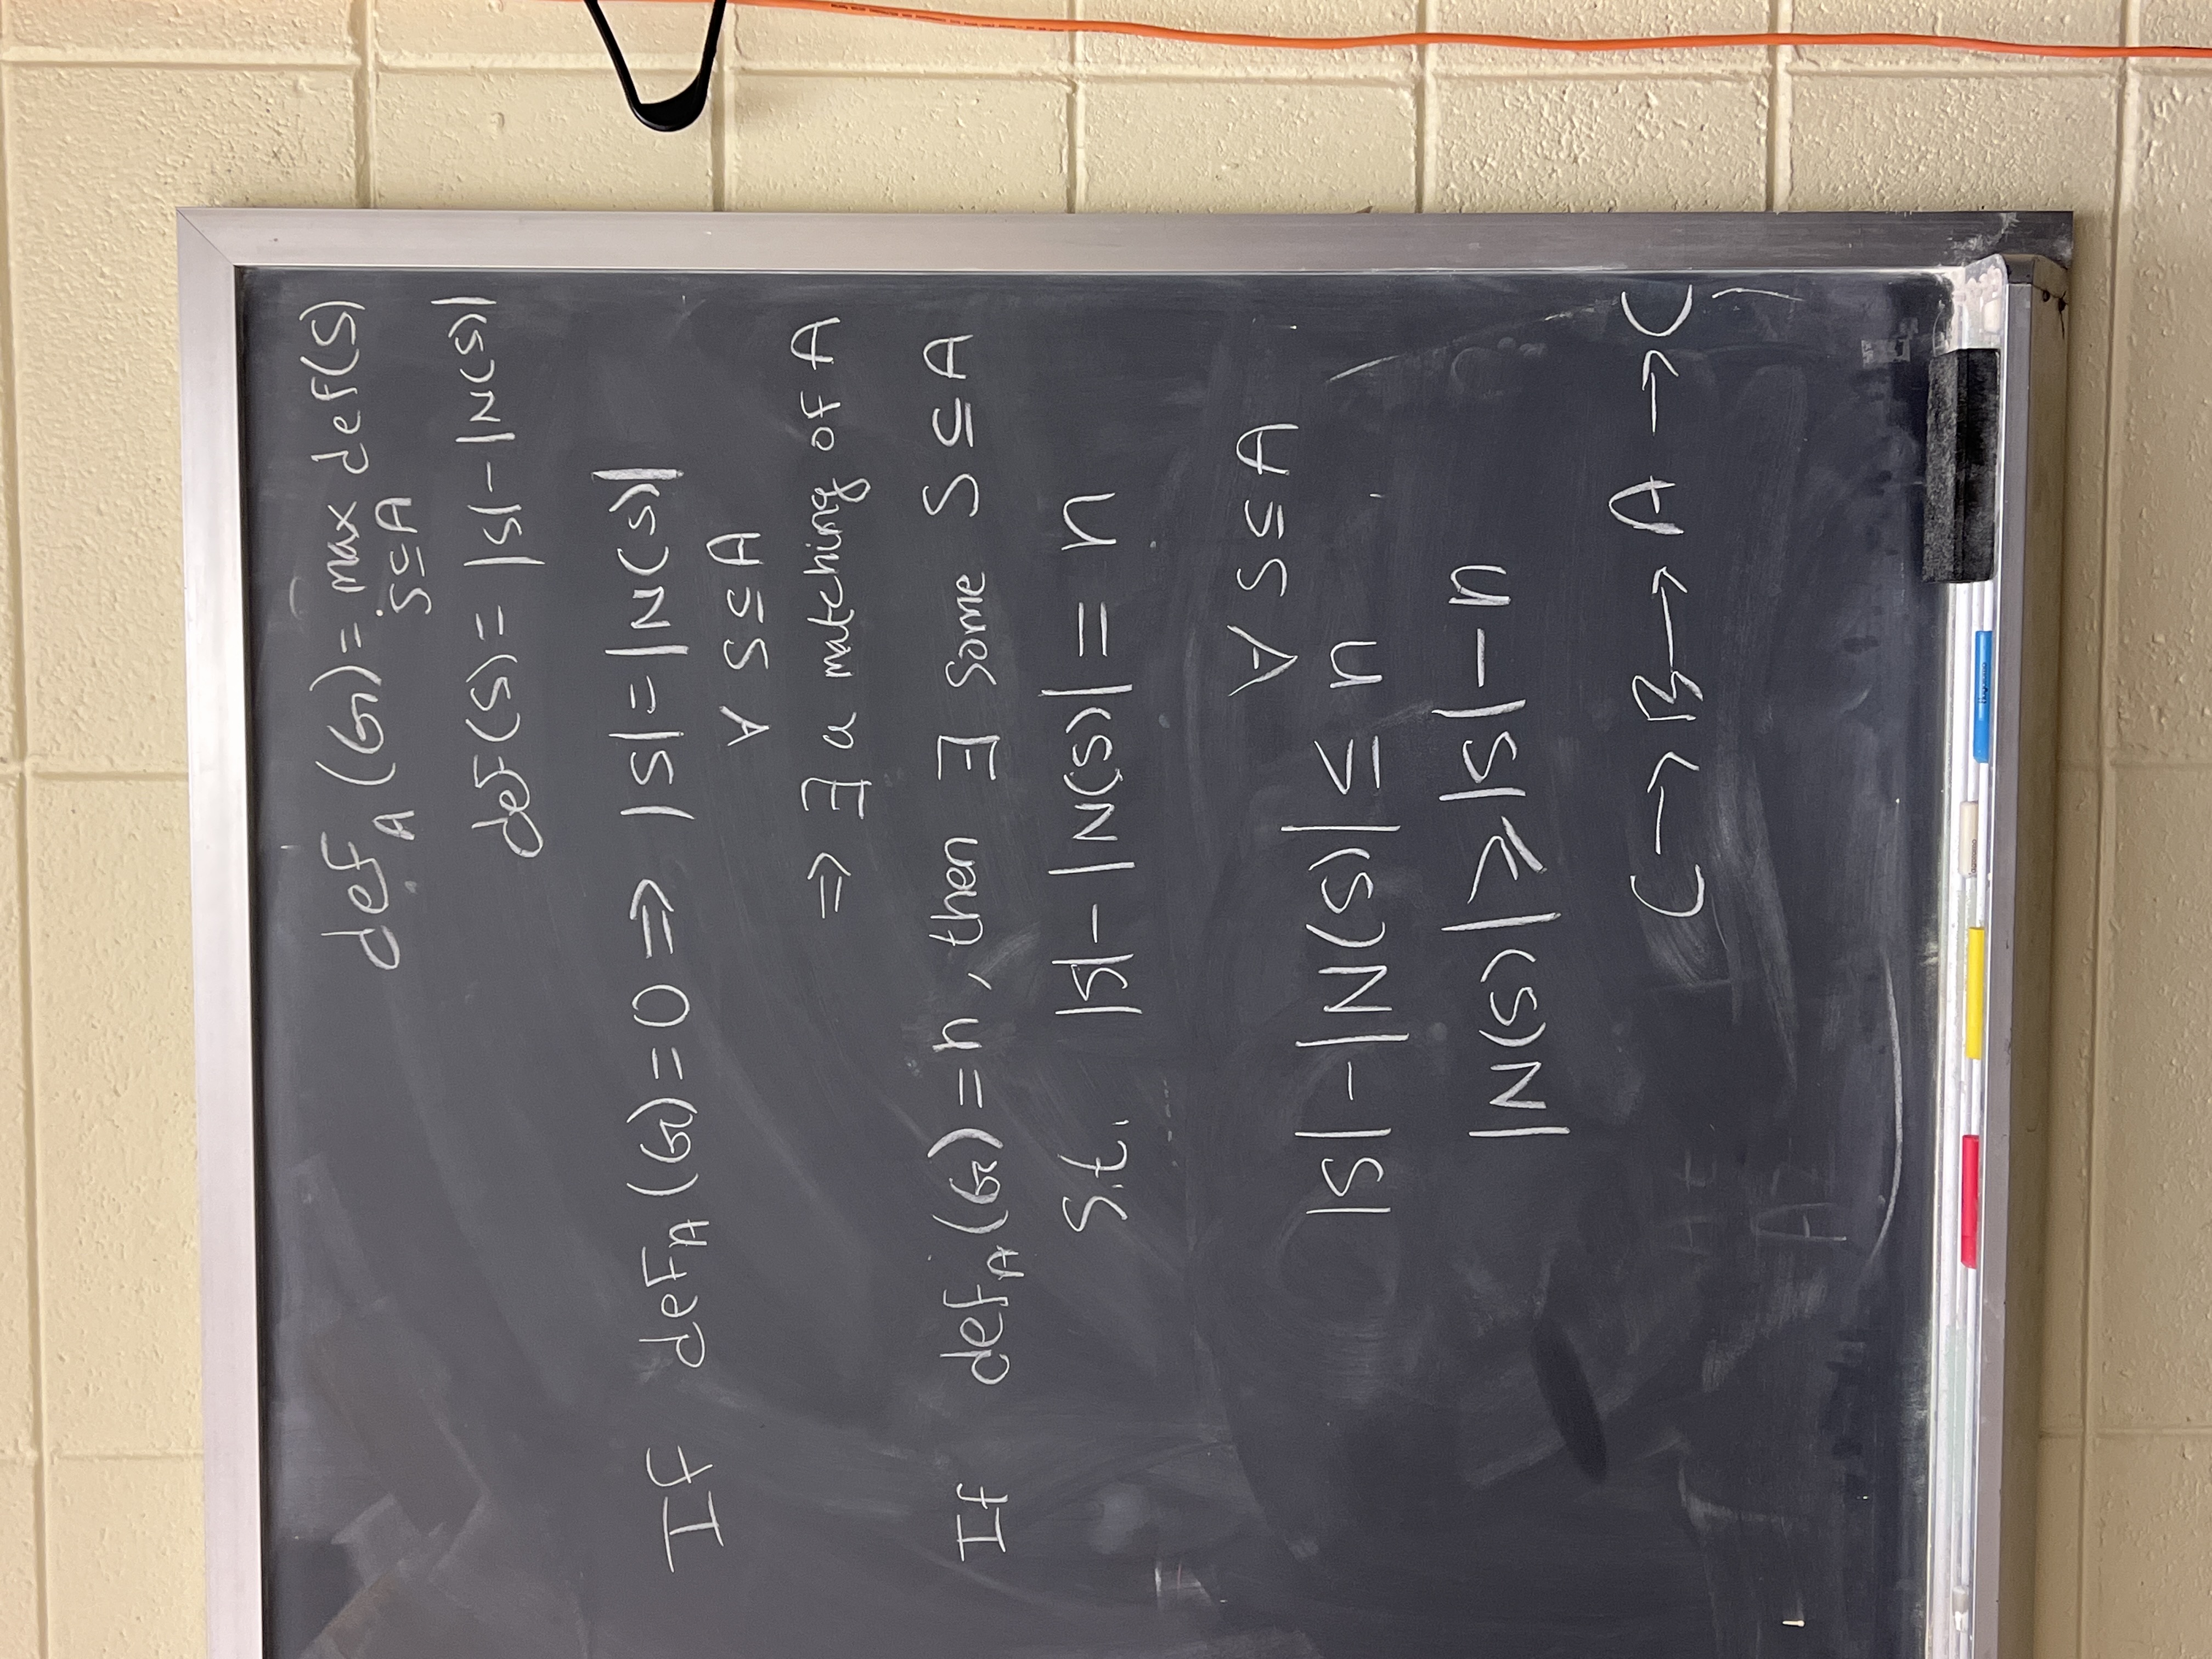 def_A (G) = max def(S)
S⊆A
def(S) = |S| - |N(S)|
If def_A (G) = 0 ⇒ |S| = |N(S)|
∀ S⊆A
⇒ ∃ a matching of A
If def_A (G) = n, then ∃ some S ⊆ A
s.t. |S| - |N(S)| = n
∀ S⊆A
|S| - |N(S)| ≤ n
|N(S)| ≥ |S| - n
C → B → A → C
Hagoromo